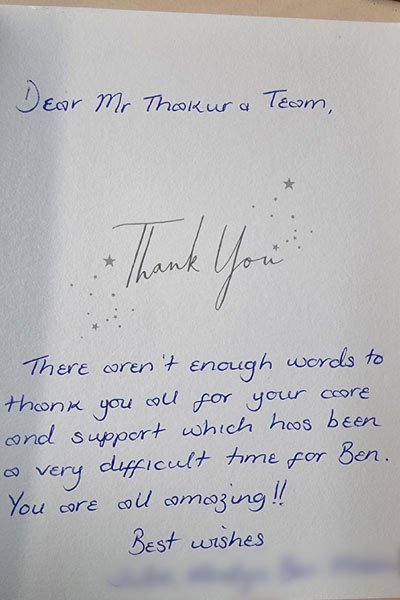 Dear Mr Thakur & Team,
Thank You
There aren't enough words to
thank you all for your care
and support which has been
a very difficult time for Ben.
You are all amazing!!
Best wishes